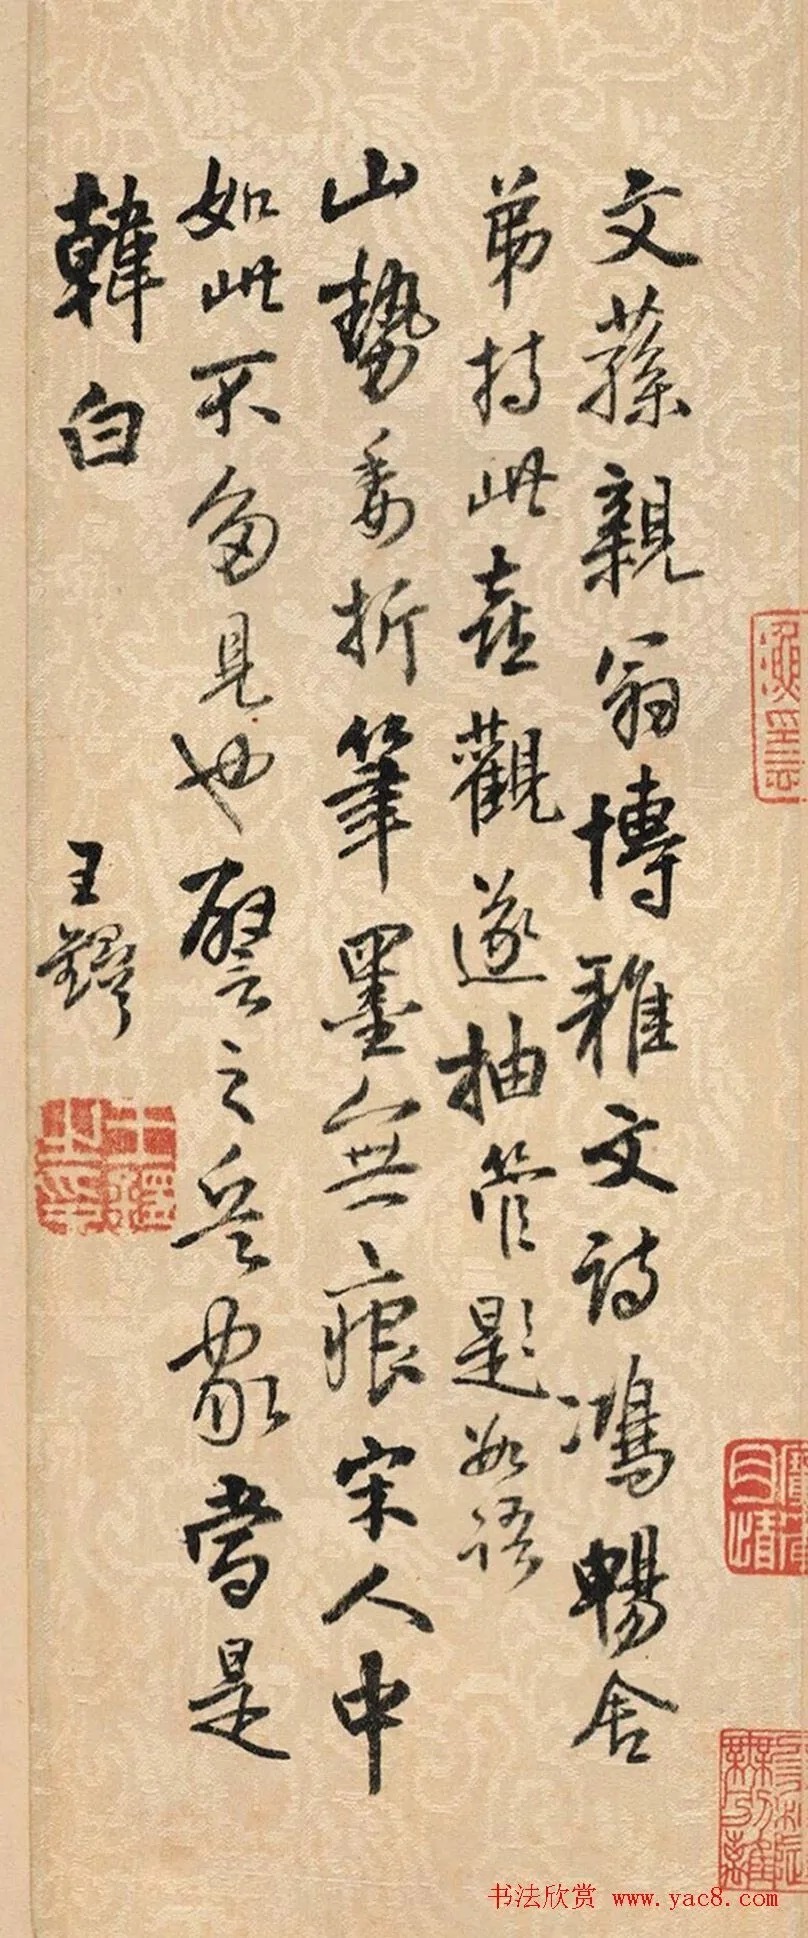 文蓀親翁博雅文詩鴻暢舍
弟持此㐂觀遂抽管題數語
山勢委折筆墨無痕宋人中
如此不多見也譬之兵家當是
韓白
王鐸
書法欣赏 www.yac8.com